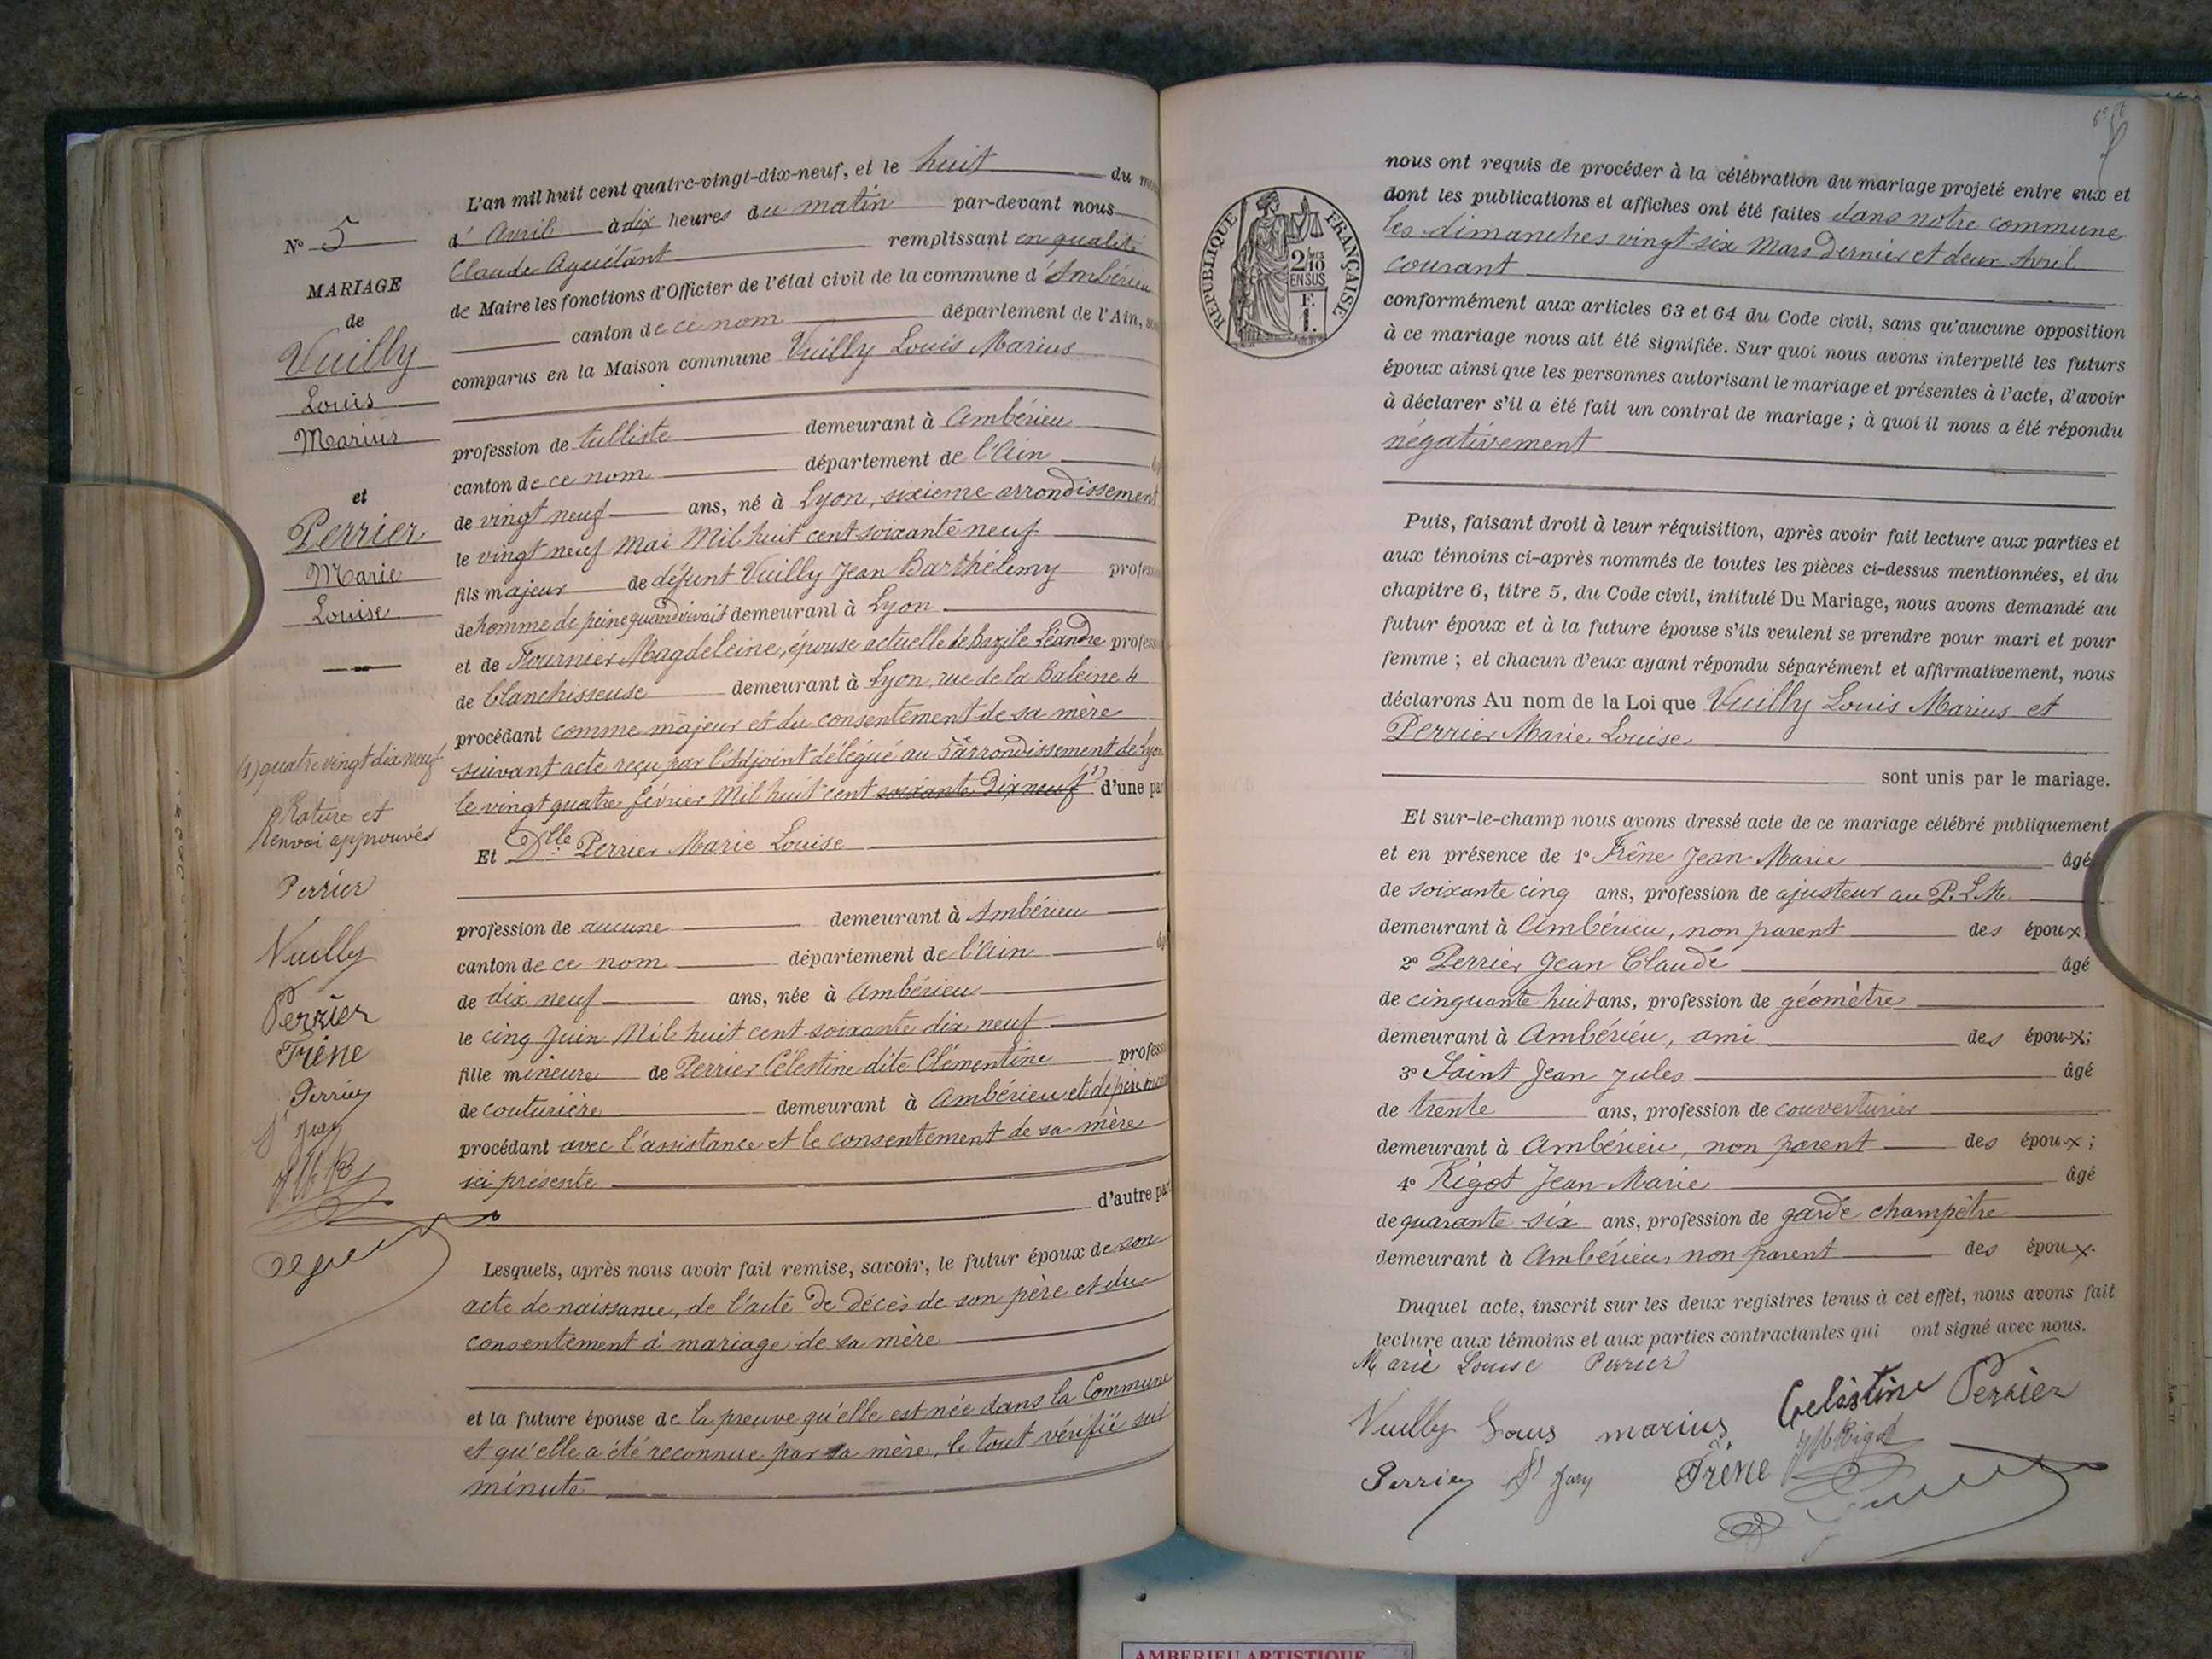 N° 5
MARIAGE
de
Vuilly
Louis
Marius
et
Perrier
Marie
Louise
(1) quatre vingt dix neuf
Rature et
Renvoi approuvés
Perrier
Vuilly
Perrier
Trêne
Perrier
St Jean
L'an mil huit cent quatre-vingt-dix-neuf, et le huit du
d'Avril à dix heures du matin par-devant nous
Claude Aguétant remplissant en qualité
de Maire les fonctions d'Officier de l'état civil de la commune d'Ambérieu
canton de ce nom département de l'Ain,
comparus en la Maison commune Vuilly Louis Marius
profession de tulliste demeurant à Ambérieu
canton de ce nom département de l'Ain
de vingt neuf ans, né à Lyon, sixieme arrondissement
le vingt neuf Mai Mil huit cent soixante neuf
fils majeur de défunt Vuilly Jean Barthélemy profess
de homme de peine quand vivait demeurant à Lyon
et de Fournier Magdeleine, épouse actuelle de Bazile Léandre profess
de blanchisseuse demeurant à Lyon, rue de la Baleine 4
procédant comme majeur et du consentement de sa mère
suivant acte reçu par l'Adjoint délégué au 5e arrondissement de Lyon
le vingt quatre février Mil huit cent soixante dix neuf (1) d'une par
Et Dlle Perrier Marie Louise
profession de aucune demeurant à Ambérieu
canton de ce nom département de l'Ain
de dix neuf ans, née à Ambérieu
le cinq Juin Mil huit cent soixante dix neuf
fille mineure de Perrier Célestine dite Clémentine profess
de couturière demeurant à Ambérieu et de père
procédant avec l'assistance et le consentement de sa mère
ici présente
d'autre par
Lesquels, après nous avoir fait remise, savoir, le futur époux de son
acte de naissance, de l'acte de décès de son père et du
consentement à mariage de sa mère
et la future épouse de la preuve qu'elle est née dans la Commune
et qu'elle a été reconnue par sa mère, le tout vérifié sur
minute
RÉPUBLIQUE FRANÇAISE
2/10 EN SUS
F. 1.
nous ont requis de procéder à la célébration du mariage projeté entre eux et
dont les publications et affiches ont été faites dans notre commune
les dimanches vingt six Mars dernier et deux Avril
courant
conformément aux articles 63 et 64 du Code civil, sans qu'aucune opposition
à ce mariage nous ait été signifiée. Sur quoi nous avons interpellé les futurs
époux ainsi que les personnes autorisant le mariage et présentes à l'acte, d'avoir
à déclarer s'il a été fait un contrat de mariage ; à quoi il nous a été répondu
négativement
Puis, faisant droit à leur réquisition, après avoir fait lecture aux parties et
aux témoins ci-après nommés de toutes les pièces ci-dessus mentionnées, et du
chapitre 6, titre 5, du Code civil, intitulé Du Mariage, nous avons demandé au
futur époux et à la future épouse s'ils veulent se prendre pour mari et pour
femme ; et chacun d'eux ayant répondu séparément et affirmativement, nous
déclarons Au nom de la Loi que Vuilly Louis Marius et
Perrier Marie Louise
sont unis par le mariage.
Et sur-le-champ nous avons dressé acte de ce mariage célébré publiquement
et en présence de 1° Trêne Jean Marie âgé
de soixante cinq ans, profession de ajusteur au P.L.M.
demeurant à Ambérieu, non parent des époux
2° Perrier Jean Claude âgé
de cinquante huit ans, profession de géomètre
demeurant à Ambérieu, ami des époux;
3° Saint Jean Jules âgé
de trente ans, profession de couverturier
demeurant à Ambérieu, non parent des époux;
4° Rigot Jean Marie âgé
de quarante six ans, profession de garde champêtre
demeurant à Ambérieu, non parent des époux.
Duquel acte, inscrit sur les deux registres tenus à cet effet, nous avons fait
lecture aux témoins et aux parties contractantes qui ont signé avec nous.
Marie Louise Perrier
Celèstine Perrier
Vuilly Louis marius
JM Rigot
Perrier St Jean Trêne
AMBERIEU ARTISTIQUE